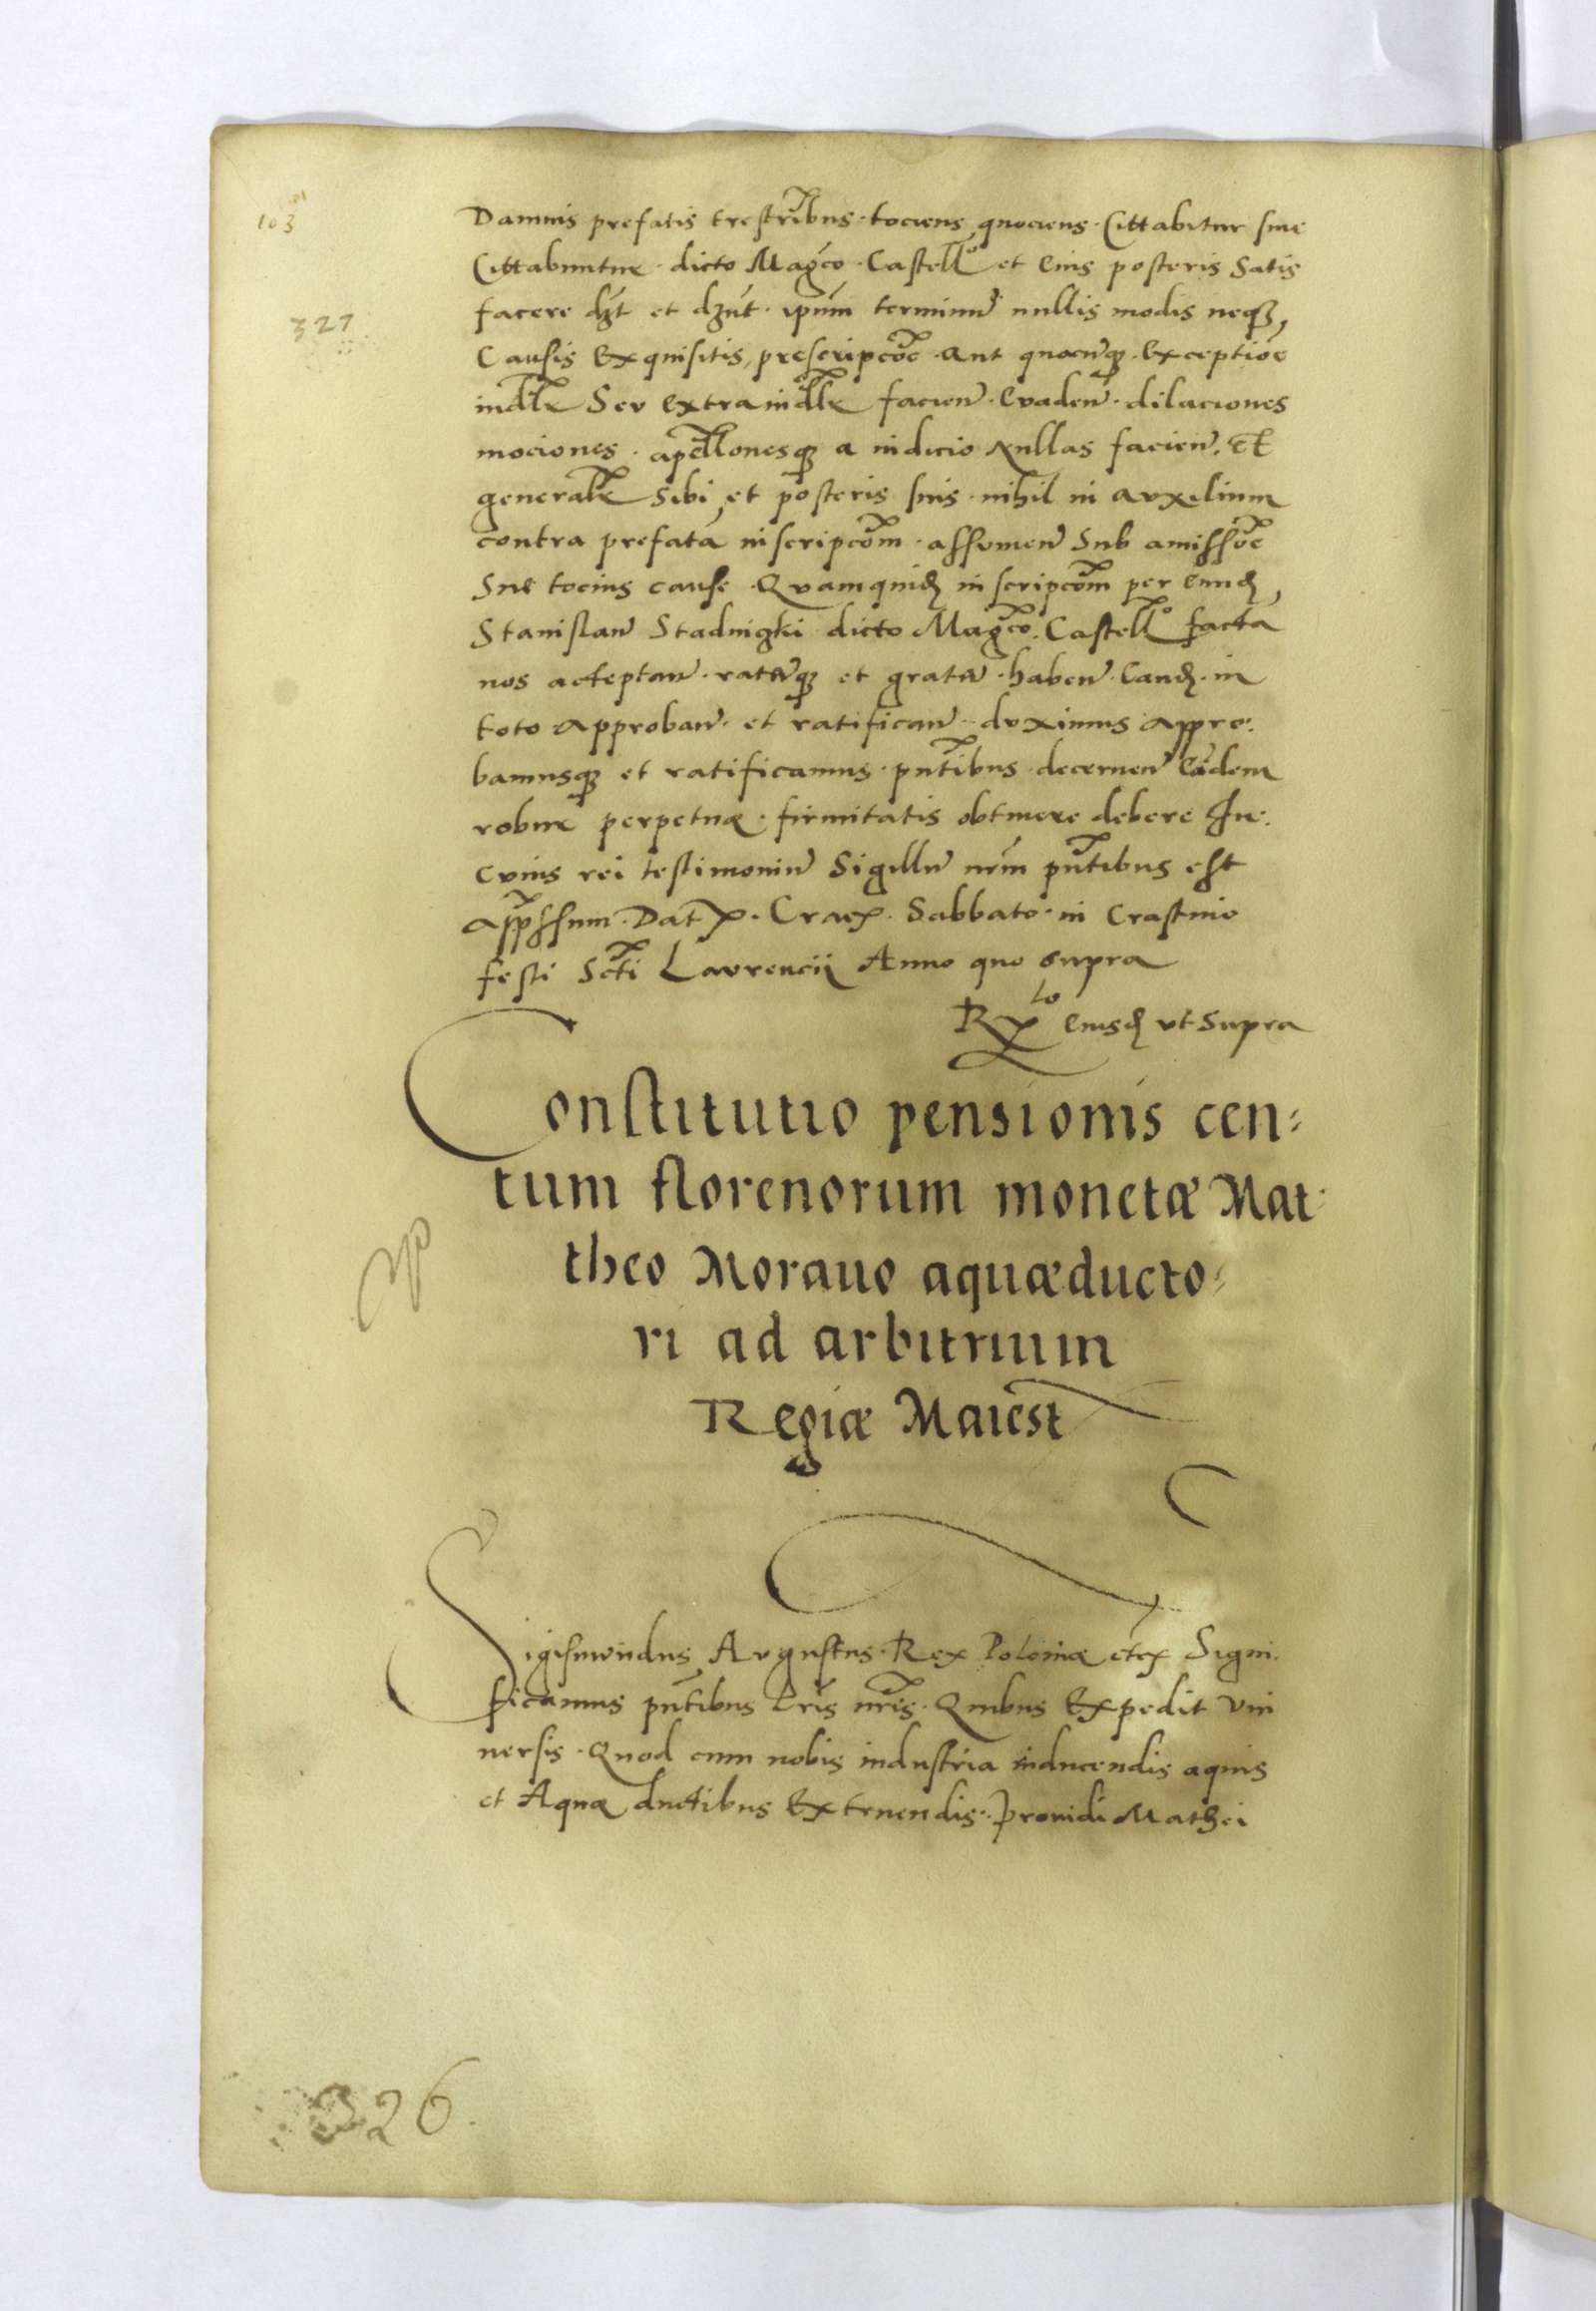 103
Damnis prefatis trestribus tociens quociens Cittabitur siue
327
Cittabuntur dicto Magco Castello et Eius posteris Satis
facere dzt et dznt ipum terminu nullis modis neq3,
Causis Exquisitis, prescripcoe Aut quocunq3 Exceptioe
iudlr Seu Extraiudlr facien Euaden dilaciones
mociones apellonesq3 a iudicio Nullas facien. Et
generalr Sibi et posteris suis nihil in auxilium
contra prefata inscripcom assumen Sub amissioe
Sue tocius cause Quamquid inscripcom per Eund,
Stanislau Stadnizki dicto Magco Castello facta
nos acceptan rataq3 et grata haben Eand in
toto Approban et ratifican duximus Appro:
bamusq3 et ratificamus pntibus decernen Eadem
robur perpetuæ firmitatis obtinere debere In:
cuius rei testimoniu Sigillu nrm pntibus est
Appssum Dat Crac Sabbato in Crastino
festi Scti Laurencij Anno quo supra
Rlo Eiusd ut Supra
Constitutio pensionis cen:
tum florenorum monetæ Mat:
theo Morauo aquæducto:
ri ad arbitrium
Regiæ Maiest
Sigismundus Augustus Rex Poloniæ etc Signi:
ficamus pntibus lris nris Quibus Expedit Vni
uersis Quod cum nobis industria inducendis aquis
et Aquæ ductibus Extruendis Prouidi Mathei
326